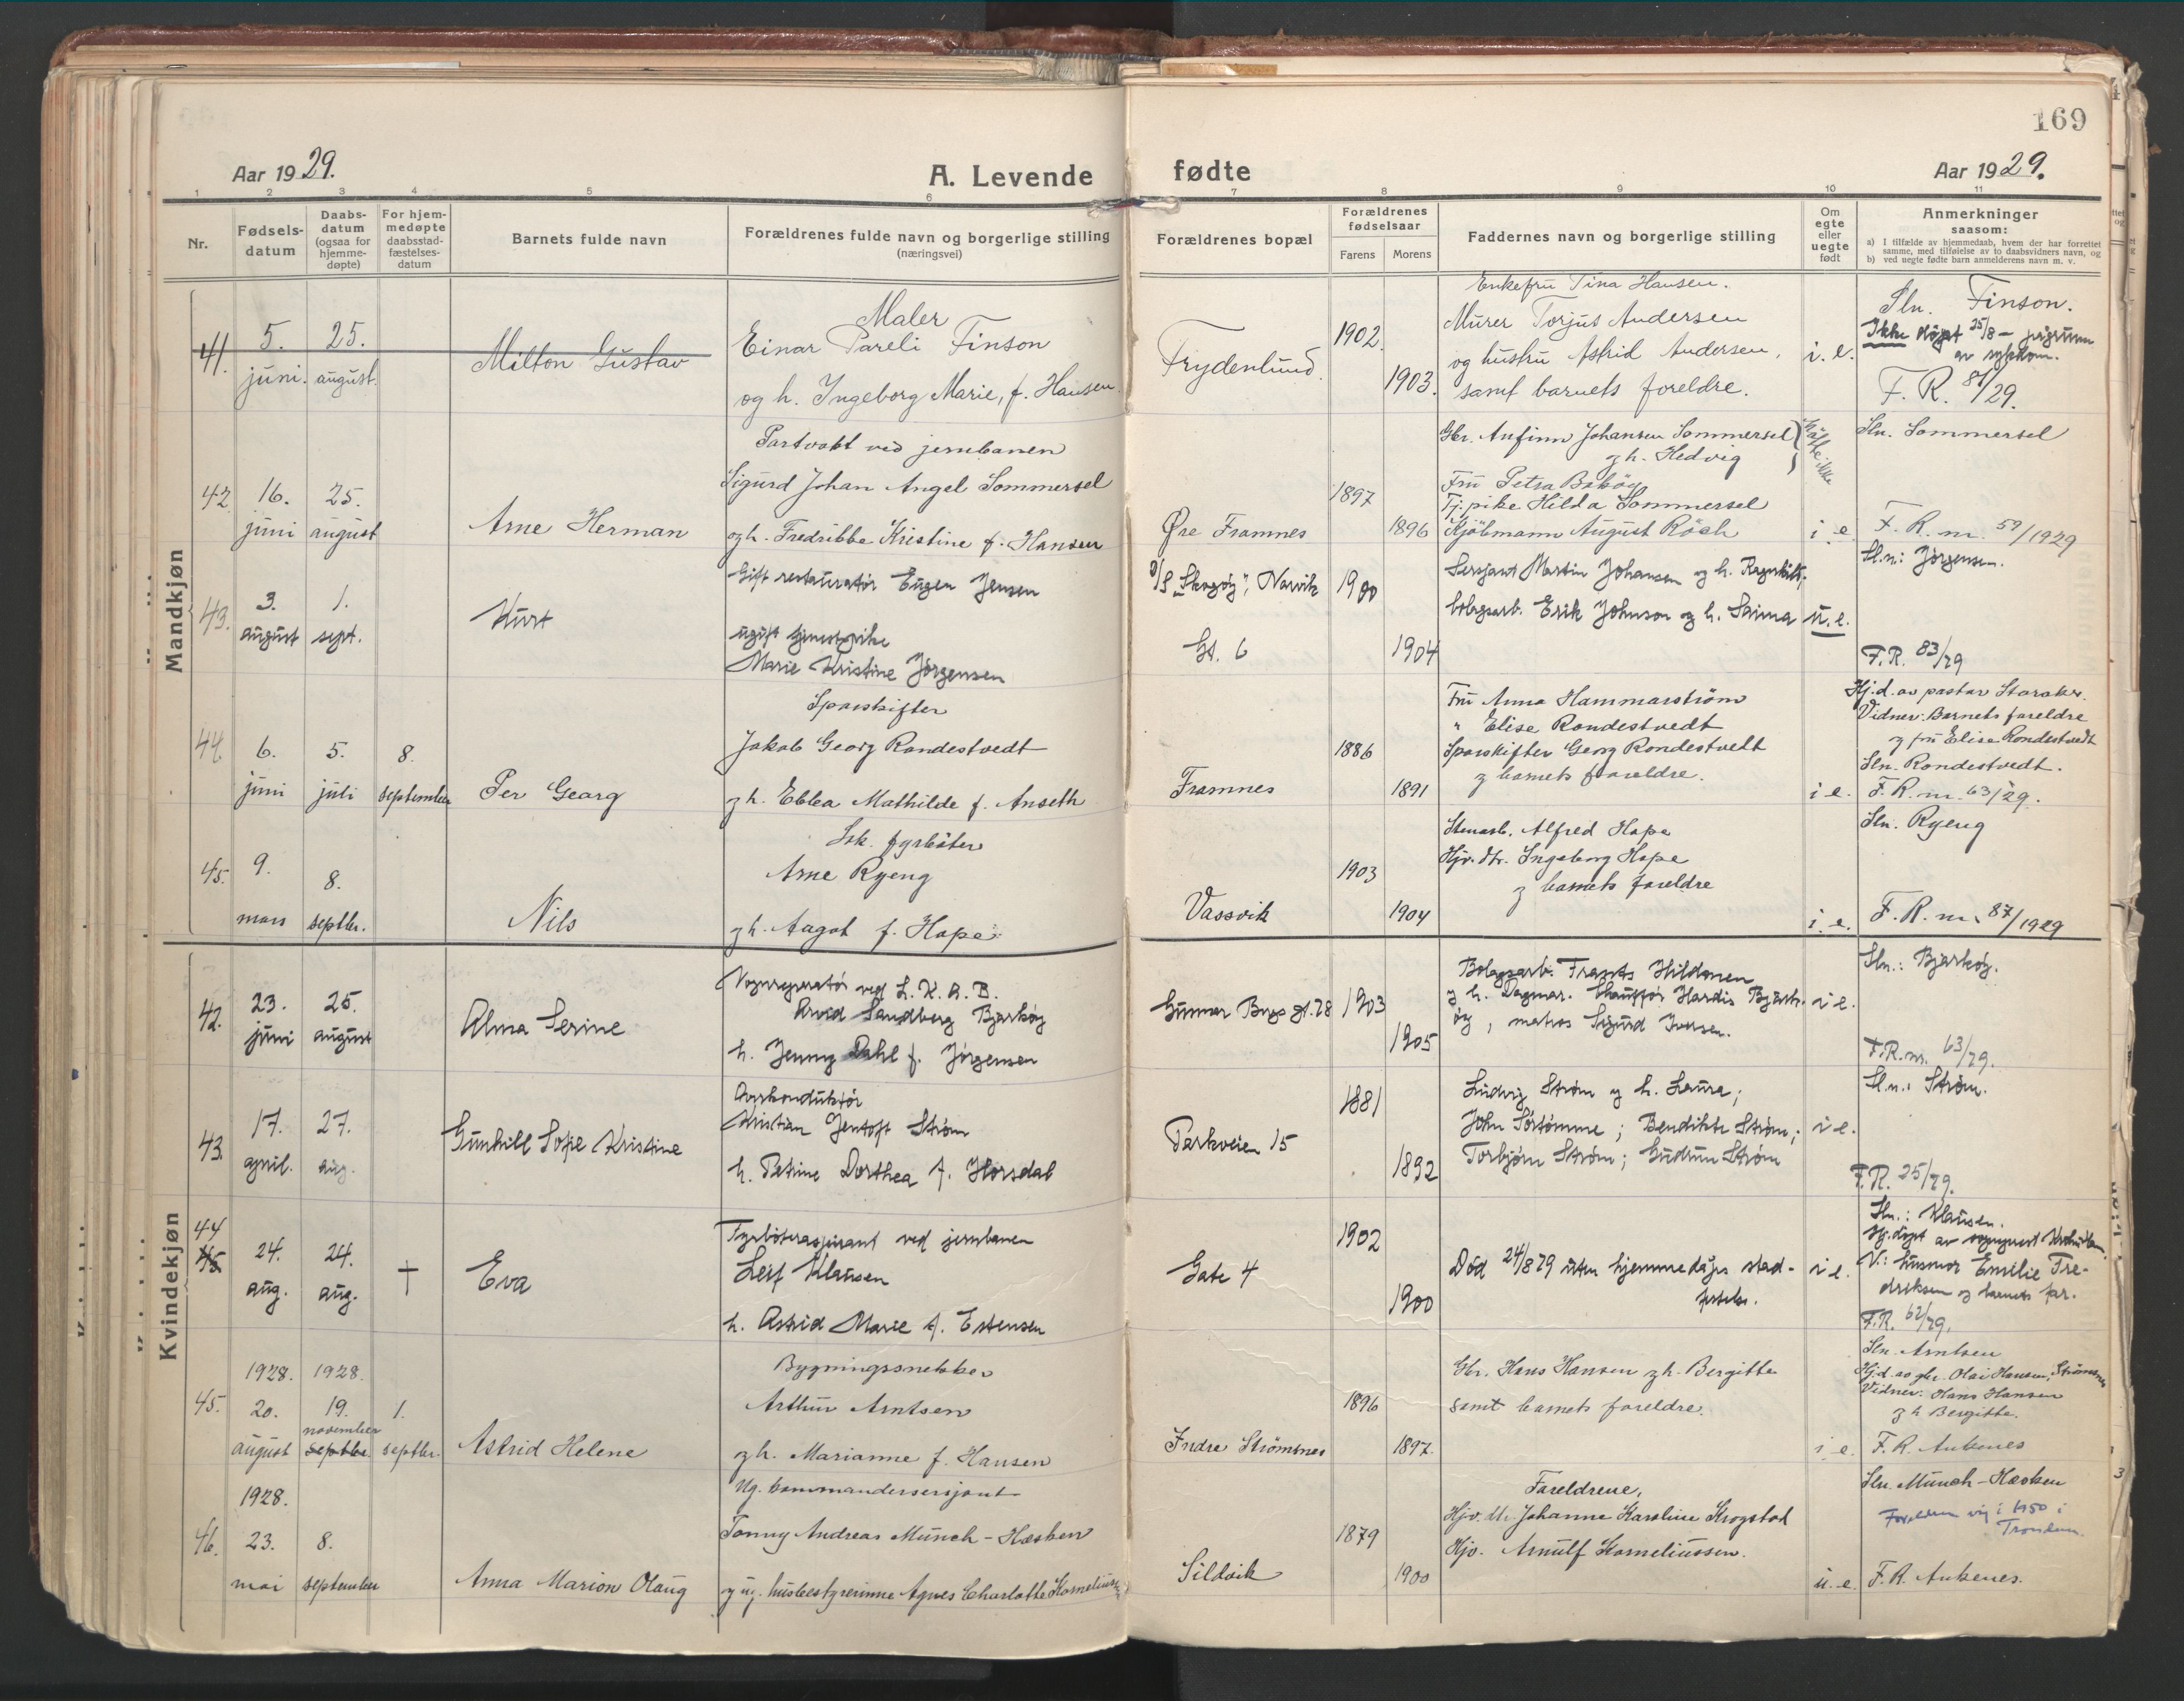 169
Aar 1929.
A. Levende
fødte
Aar 1929.
1 2 3 4 5 6 7 8 9 10 11
Nr.
Fødsels-
datum
Daabs-
datum
(ogsaa for
hjemme-
døpte)
For hjem-
medøpte
daabsstad-
fæstelses-
datum
Barnets fulde navn
Forældrenes fulde navn og borgerlige stilling
(næringsvei)
Forældrenes bopæl
Forældrenes
fødselsaar
Farens Morens
Faddernes navn og borgerlige stilling
Om
egte
eller
uegte
født
Anmerkninger
saasom:
a) I tilfælde av hjemmedaab, hvem der har forrettet
samme, med tilføielse av to daabsvidners navn, og
b) ved uegte fødte barn anmelderens navn m. v.
Mandkjøn
41.
5.
juni.
25.
august.
Milton Gustav
Maler
Einar Pareli Finson
og h. Ingeborg Marie, f. Hansen.
Frydenlund.
1902.
1903.
Enkefru Tina Hansen.
Murer Torjus Andersen
og hustru Astrid Andersen,
samt barnets foreldre.
i. e.
Sln. Finson.
Ikke døpt 25/8 –
av sykdom.
F. R. 81/29.
42
16.
juni
25.
august
Arne Herman
Sigurd Johan Angel Sommersel
ved jernbanen
og h. Fredrikke Kristine f. Hansen
Øre Framnes
1897
1896
Gbr. Anfinn Johansen Sommersel
og h. Hedvig
ikke
Fru Petra
Tj.pike Hilda Sommersel
Kjøbmann August Rösh
i e.
Sln. Sommersel
F. R. nr. 59/1929
43.
3.
august
1.
sept.
Kurt
Gift restauratør Eugen Jensen
ugift tjenestepike
Marie Kristine Jørgensen
D/S "Skogøy", Narvik
Gt. 6
1900
1904
Sersjant Martin Johansen og h. Ragnhild;
bolagsarb. Erik Johnson og h. Saima
u. e.
Sl.n: Jørgensen.
F.R. 83/29
44.
6.
juni
5.
juli
8.
september
Per Georg
Sporskifter
Jakob Georg Rondestvedt
og h. Ebbea Mathilde f. Anseth
Framnes
1886
1891
Fru Anna Hammarström
" Elise Rondestvedt
Sporskifter Georg Rondestvedt
og barnets foreldre.
i e.
Hj.d. av pastor
Vidner: Barnets foreldre
og fru Elise Rondestvedt
Sln. Rondestvedt.
F. R. nr. 63/29.
45.
9.
mars
8.
septbr.
Nils
Lok. fyrbøter
Arne Ryeng
og h. Aagot f. Hope
Vassvik
1903
1904
Stenarb. Alfred Hope
Hjv. dtr. Ingeborg Hope
og barnets foreldre
i. e.
Sln. Ryeng
F. R. nr. 87/1929
Kvindekjøn
42.
23.
juni
25.
august
Alma Serine
Vognreparatør ved L. K. A. B.
Arvid Sandberg Bjarkøy
h. Jenny Dahl f. Jørgensen
Gunnar Bergs gt. 28
1903
1905
Bolagsarb. Frants Hildonen
og h. Dagmar. Chauffør Hardis Bjark-
øy, matros Sigurd Iversen.
i e.
Sln.: Bjarkøy.
F.R. nr. 63/29.
43.
17.
april.
27.
aug.
Gunhill Sofie Kristine
Overkonduktør
Kristian Jentoft Strøm
h. Petrine Dorthea f. Horsdal
Parkveien 15
1881
1892
Ludvig Strøm og h. Laura;
John Sørtømme; Bendikte Strøm;
Torbjørn Strøm; Gudrun Strøm
i e.
Sl.n.: Strøm.
F.R. 25/29.
44
45
24.
aug.
24.
aug.
†
Eva
Fyrbøteraspirant ved jernbanen
Leif Klausen
h. Astrid Marie f. Estensen
Gate 4
1902
1900
Død 24/8 29 uten hjemmedåps stad-
festelse.
i e.
Sln.: Klausen.
Hj. døpt av sogneprest
V.: husmor Emilie Fre-
driksen og barnets far.
F.R. 62/29.
45.
1928.
20.
august
1928.
19.
november
septbr.
1.
septbr.
Astrid Helene
Bygningssnekker
Arthur Arntsen
og h. Marianne f. Hansen
Indre Strömsnes
1896
1897.
Gbr. Hans Hansen og h. Bergitte
samt barnets foreldre.
i e.
Sln. Arntsen
Hj.d. av gbr. Olai Hansen, Strömsnes
Vidner: Hans Hansen
og h Bergitte.
F. R. Ankenes
46.
1928.
23.
mai
8.
september
Anna Marion Olaug
Ug. kommandersersjant
Tonny Andreas Münch-Hæsken
og ug. husbestyrerinne Agnes Charlotte Korneliussen
Sildvik
1879
1900
Foreldrene,
Hjv. dtr. Johanne Karoline Krogstad
Hjv. Arnulf Korneliussen.
u. e.
Sln. Münch-Hæsken
Foreldrene vig i 1950 i
Trondheim.
F. R. Ankenes.